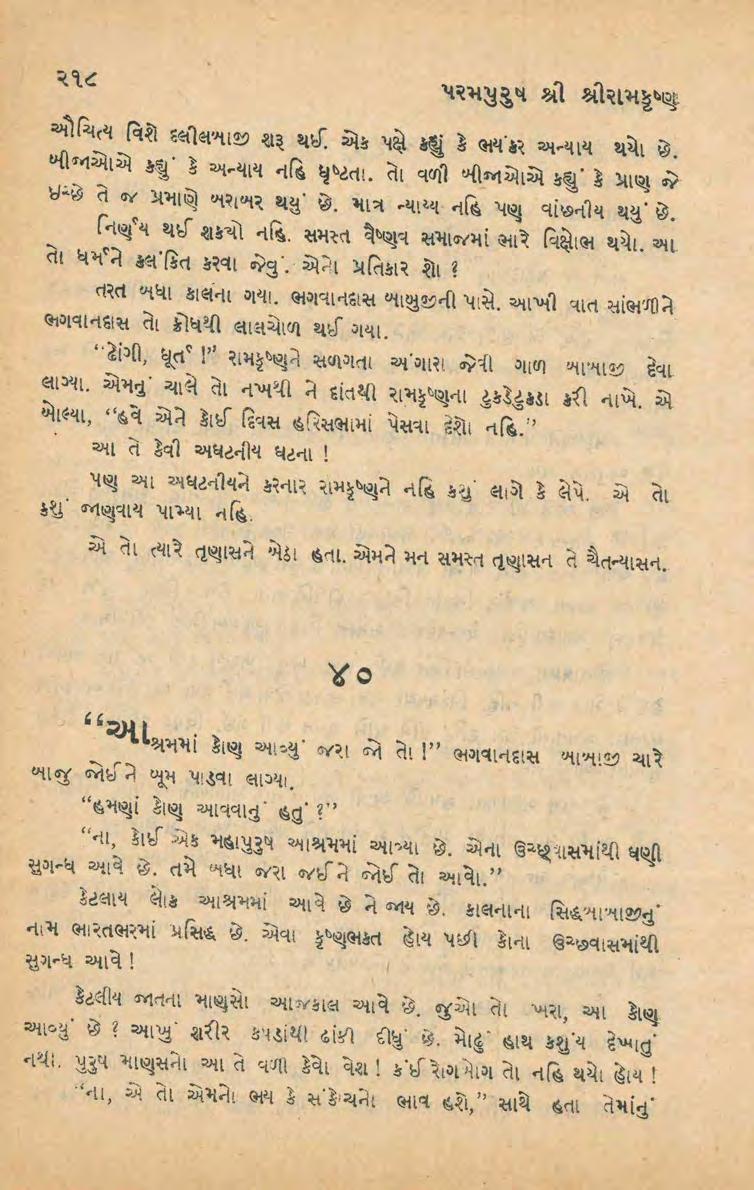 ૨૧૮
પરમપુરુષ શ્રી શ્રીરામકૃષ્ણ
ઔચિત્ય વિશે દલીલબાજી શરૂ થઈ. એક પક્ષે કહ્યું કે ભયંકર અન્યાય થયો છે.
બીજાઓએ કહ્યું કે અન્યાય નહિ ધૃષ્ટતા. તો વળી બીજાઓએ કહ્યું કે પ્રાણ જે
ઇચ્છે તે જ પ્રમાણે બરાબર થયું છે. માત્ર ન્યાય્ય નહિ પણ વાંછનીય થયું છે.
નિર્ણય થઈ શકયો નહિ. સમસ્ત વૈષ્ણવ સમાજમાં ભારે વિક્ષોભ થયો. આ
તો ધર્મને કલંકિત કરવા જેવું. એનો પ્રતિકાર શો ?
તરત બધા કાલના ગયા. ભગવાનદાસ બાબુજીની પાસે. આખી વાત સાંભળીને
ભગવાનદાસ તો ક્રોધથી લાલચોળ થઈ ગયા.
“ઢોંગી, ધૂર્ત !” રામકૃષ્ણને સળગતા અંગારા જેવી ગાળ બાબાજી દેવા
લાગ્યા. એમનું ચાલે તો નખથી ને દાંતથી રામકૃષ્ણના ટુકડેટુકડા કરી નાખે. એ
બોલ્યા, “હવે એને કોઈ દિવસ હરિસભામાં પેસવા દેશો નહિ.”
આ તે કેવી અઘટનીય ઘટના !
પણ આ અઘટનીયને કરનાર રામકૃષ્ણને નહિ કશું લાગે કે લેપે. એ તો
કશું જાણવાય પામ્યા નહિ.
એ તો ત્યારે તૃણાસને બેઠા હતા. એમને મન સમસ્ત તૃણાસન તે ચૈતન્યાસન.
૪૦
“આશ્રમમાં કોણ આવ્યું જરા જો તો !” ભગવાનદાસ બાબાજી ચારે
બાજુ જોઈને બૂમ પાડવા લાગ્યા.
“હમણાં કોણ આવવાનું હતું ?”
“ના, કોઈ એક મહાપુરુષ આશ્રમમાં આવ્યા છે. એના ઉચ્છ્વાસમાંથી ઘણી
સુગન્ધ આવે છે. તમે બધા જરા જઈને જોઈ તો આવો.”
કેટલાય લોક આશ્રમમાં આવે છે ને જાય છે. કાલનાના સિદ્ધબાબાજીનું
નામ ભારતભરમાં પ્રસિદ્ધ છે. એવા કૃષ્ણભક્ત હોય પછી કોના ઉચ્છવાસમાંથી
સુગન્ધ આવે !
કેટલીય જાતના માણસો આજકાલ આવે છે. જુઓ તો ખરા, આ કોણ
આવ્યું છે ? આખું શરીર કપડાંથી ઢાંકી દીધું છે. મોઢું હાથ કશુંય દેખાતું
નથી. પુરુષ માણસનો આ તે વળી કેવો વેશ ! કંઈ રોગબોગ તો નહિ થયો હોય !
“ના, એ તો એમનો ભય કે સંકોચનો ભાવ હશે,” સાથે હતા તેમાંનું